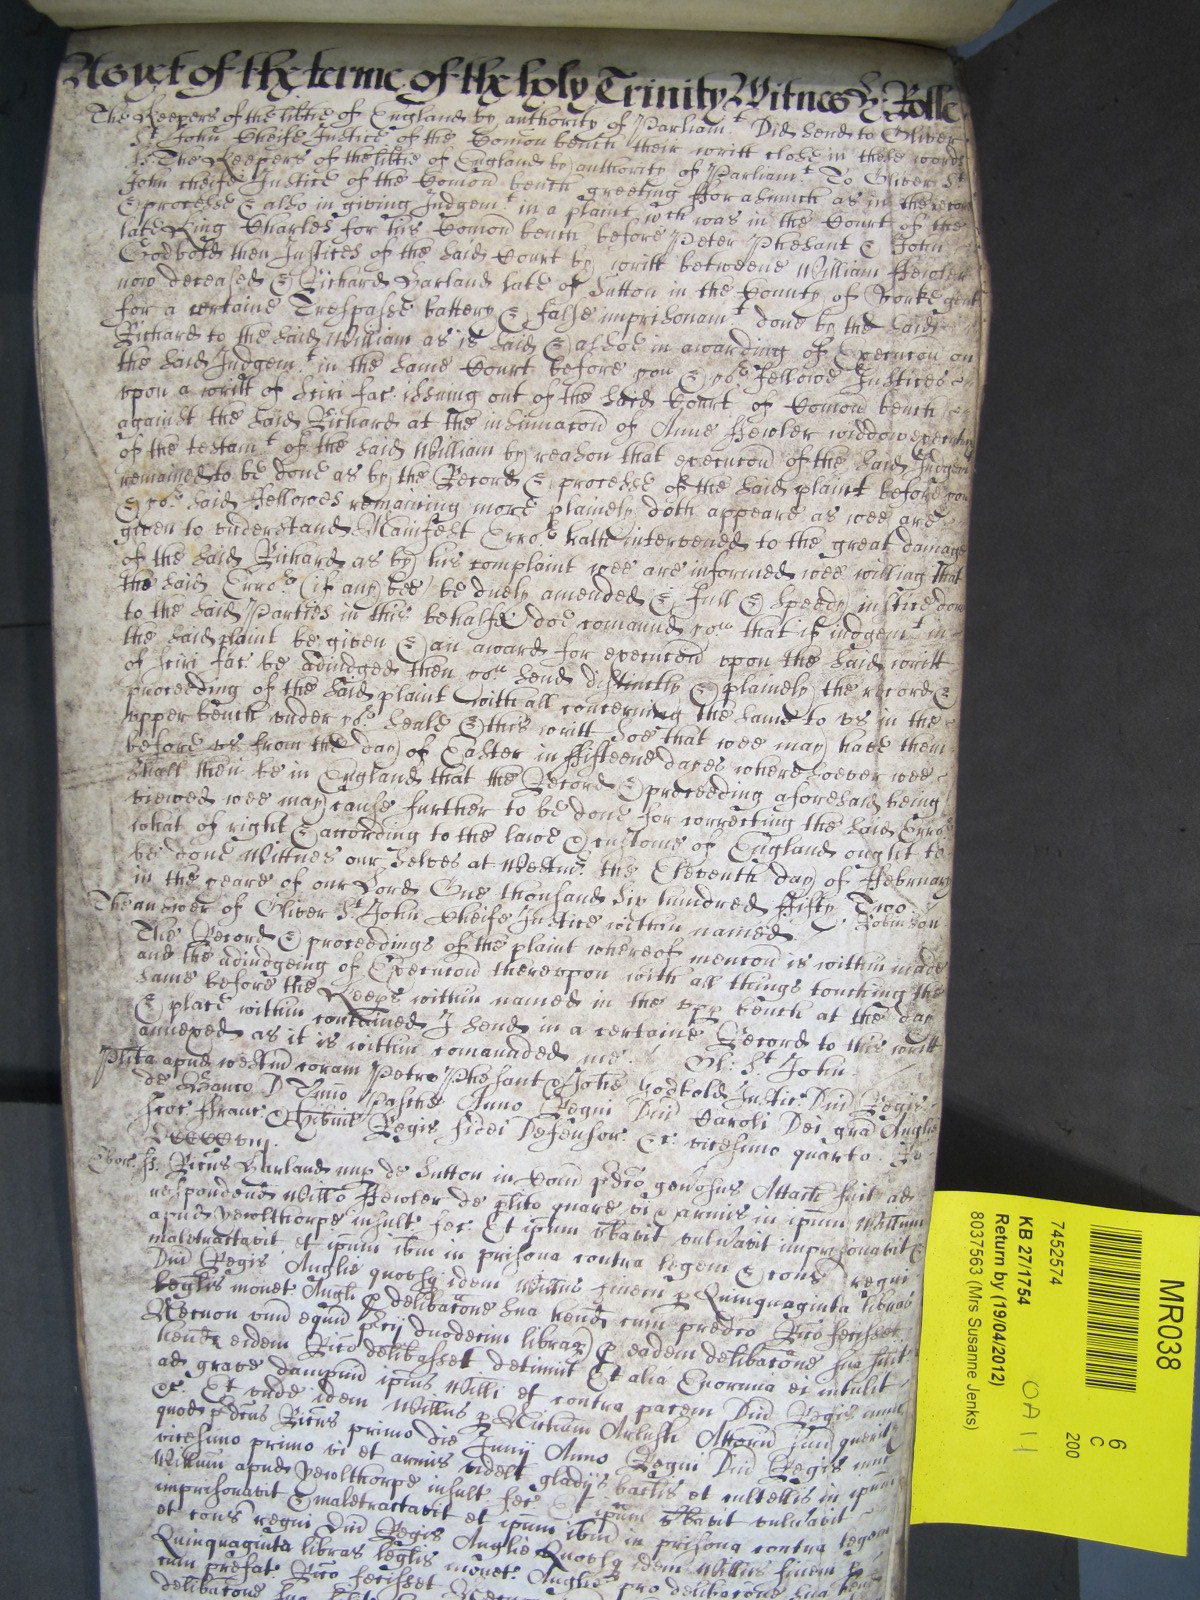 As yet of the terme of the holy Trinity Witnes H Rolle
The Keepers of the libtie of England by authority of Parliamt Did send to Oliver
St John Cheife Justice of the Comon bench their writt close in these words
ss The Keepers of the libtie of England by authority of Parliamt To Oliver St
John cheife Justice of the Comon bench greeting Forasmuch as in the record
& processe & also in giving Judgemt in a plaint wch was in the Court of the
late King Charles for his Comon bench before Peter Phesant & John
Godbold then Justices of the said Court by writt betweene William Hewler
now deceased & Richard Garland late of Sutton in the County of Yorke gent
for a certaine Trespasse battery & false imprisonamt done by the said
Richard to the said William as is said & alsoe in awarding of Execucon on
the said Judgemt in the same Court before you & yor fellowe Justices
vpon a writt of Sciri fac issuing out of the said Court of Comon bench
against the said Richard at the insinuacon of Anne Hewler widdow executrix
of the testamt of the said William by reason that execucon of the said Judgem
remained to be done as by the Record & processe of the said plaint before you
& yor said fellowes remaining more plainely doth appeare as wee are
given to vnderstand Manifest Error hath intervened to the great damage
of the said Richard as by his complaint wee are informed wee willing that
the said Error (if any bee) be duely amended & full & speedy justice done
to the said Parties in this behalfe doe comaund you that if judgemt in
the said plaint be given & an award for execucon vpon the said writt
of Sciri fac be adiudged then you send distinctly & plainely the record &
proceeding of the said plaint with all concerning the same to vs in the
vpper bench vnder yor seale & this writt soe that wee may have them
before vs from the day of Easter in fifteene dayes wheresoever wee
shall then be in England that the Record & proceeding aforesaid being
viewed wee may cause further to be done for correcting the said Error
what of right & according to the lawe & custome of England ought to
be done Wittnes our selves at Westmr the Eleventh day of February
in the yeare of our Lord One thousand Six hundred Fifty Two. Robinson
The answer of Oliver St John Cheife Justice within named
The Record & proceedings of the plaint whereof mencon is within made
and the adiudgeing of Execucon therevpon with all things touching the
same before the Keeps within named in the vpp bench at the day
& place within conteined I send in a certaine Record to this writt
annexed as it is within comaunded me. Ol: St John
Plita apud Westm coram Petro Phesant & Johe Godbold Justic Dni Regis
de Banco D Tmino Pasche Anno Regni Dni Caroli Dei gra Anglie
Scoc Franc & Hibnie Regis fidei Defensor &c vicesimo quarto Ro
Ebor ss Ricus Garland nup de Sutton in Com pdco genosus Attach fuit ad
respondend Willo Hewler de plito quare vi & armis in ipum Willum
apud Yeolthorpe insult fec Et ipum vbavit vulnavit imprisonavit &
maletractavit et ipum ibm in prisona contra legem & cons regni
Dni Regis Anglie quousq idem Willus finem p Quinquaginta libras
leglis monet Angl p delibacone sua hend cum predco Rico fecisset
Necnon vnu equu pcij duodecim librar p eadem delibacone sua
hend eidem Rico delibasset detinuit Et alia Enormia ei intulit
ad grave dampnu ipius Willi et contra pacem Dni Regis nunc
&c Et vnde idem Willus p Attorn suu querit
quod pdcus Ricus primo die Junij Anno Regni Dni Regis nunc
vicesimo primo vi et armis videlt gladijs baclis et cultellis in ipum
Willum apud Yeolthorpe insult fec Et ipum vbavit vulnavit
imprisonavit & maletractavit et ipum ibm in prisona contra legem
et cons regni Dni Regis Anglie Quousq idem Willus finem p
Quinquaginta libras leglis monet Anglie pro delibacone sua hend
cum prefat Rico fecisset
delibacone sua
MR038
6
C
200
7452574
KB 27/1754
Return by (19/04/2012)
8037563 (Mrs Susanne Jenks)